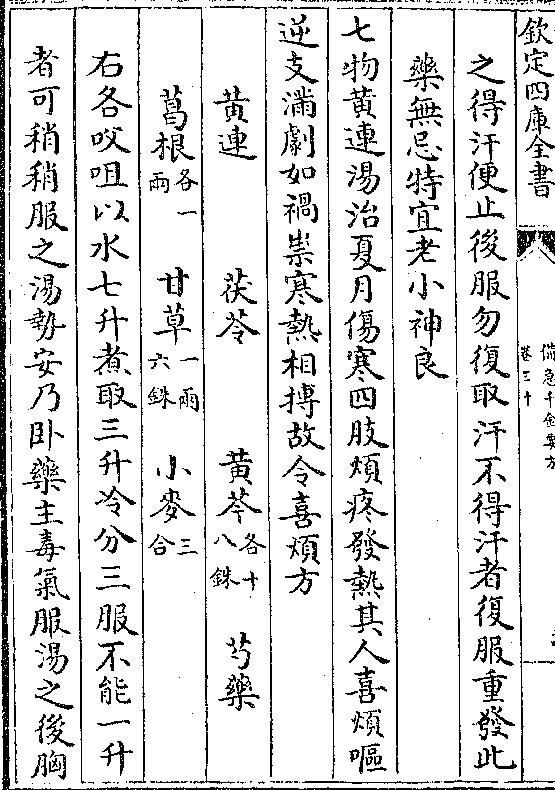 欽定四庫全書
備急千金要方
卷三十
之得汗便止後服勿復取汗不得汗者復服重發此
藥無忌特宜老小神良
七物黄連湯治夏月傷寒四肢煩疼發熱其人喜煩嘔
逆支滿劇如禍祟寒熱相搏故令喜煩方
黄連 茯苓 黄芩各十八銖 芍藥
葛根各一兩 甘草一兩六銖 小麥三合
右各㕮咀以水七升煮取三升冷分三服不能一升
者可稍稍服之湯勢安乃卧藥主毒氣服湯之後胸